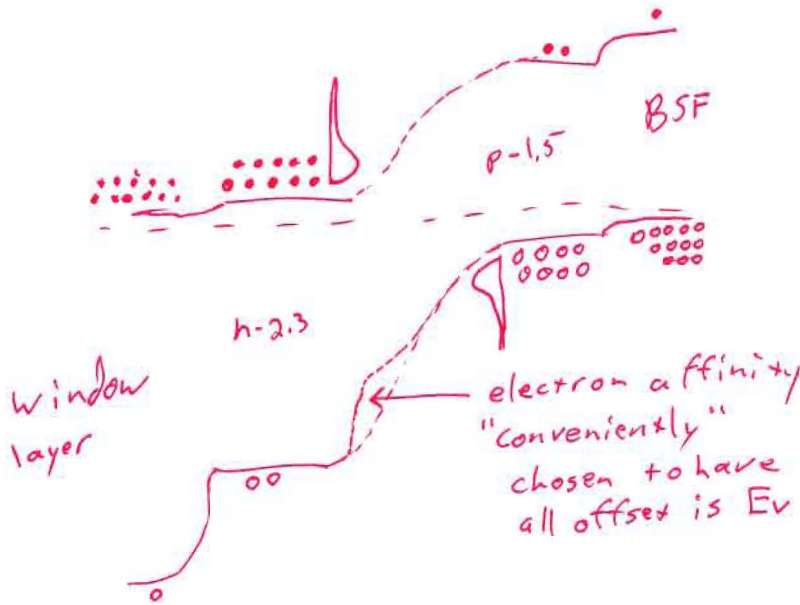 BSF
p-1.5
n-2.3
window
layer
electron affinity
"conveniently"
chosen to have
all offset is Ev